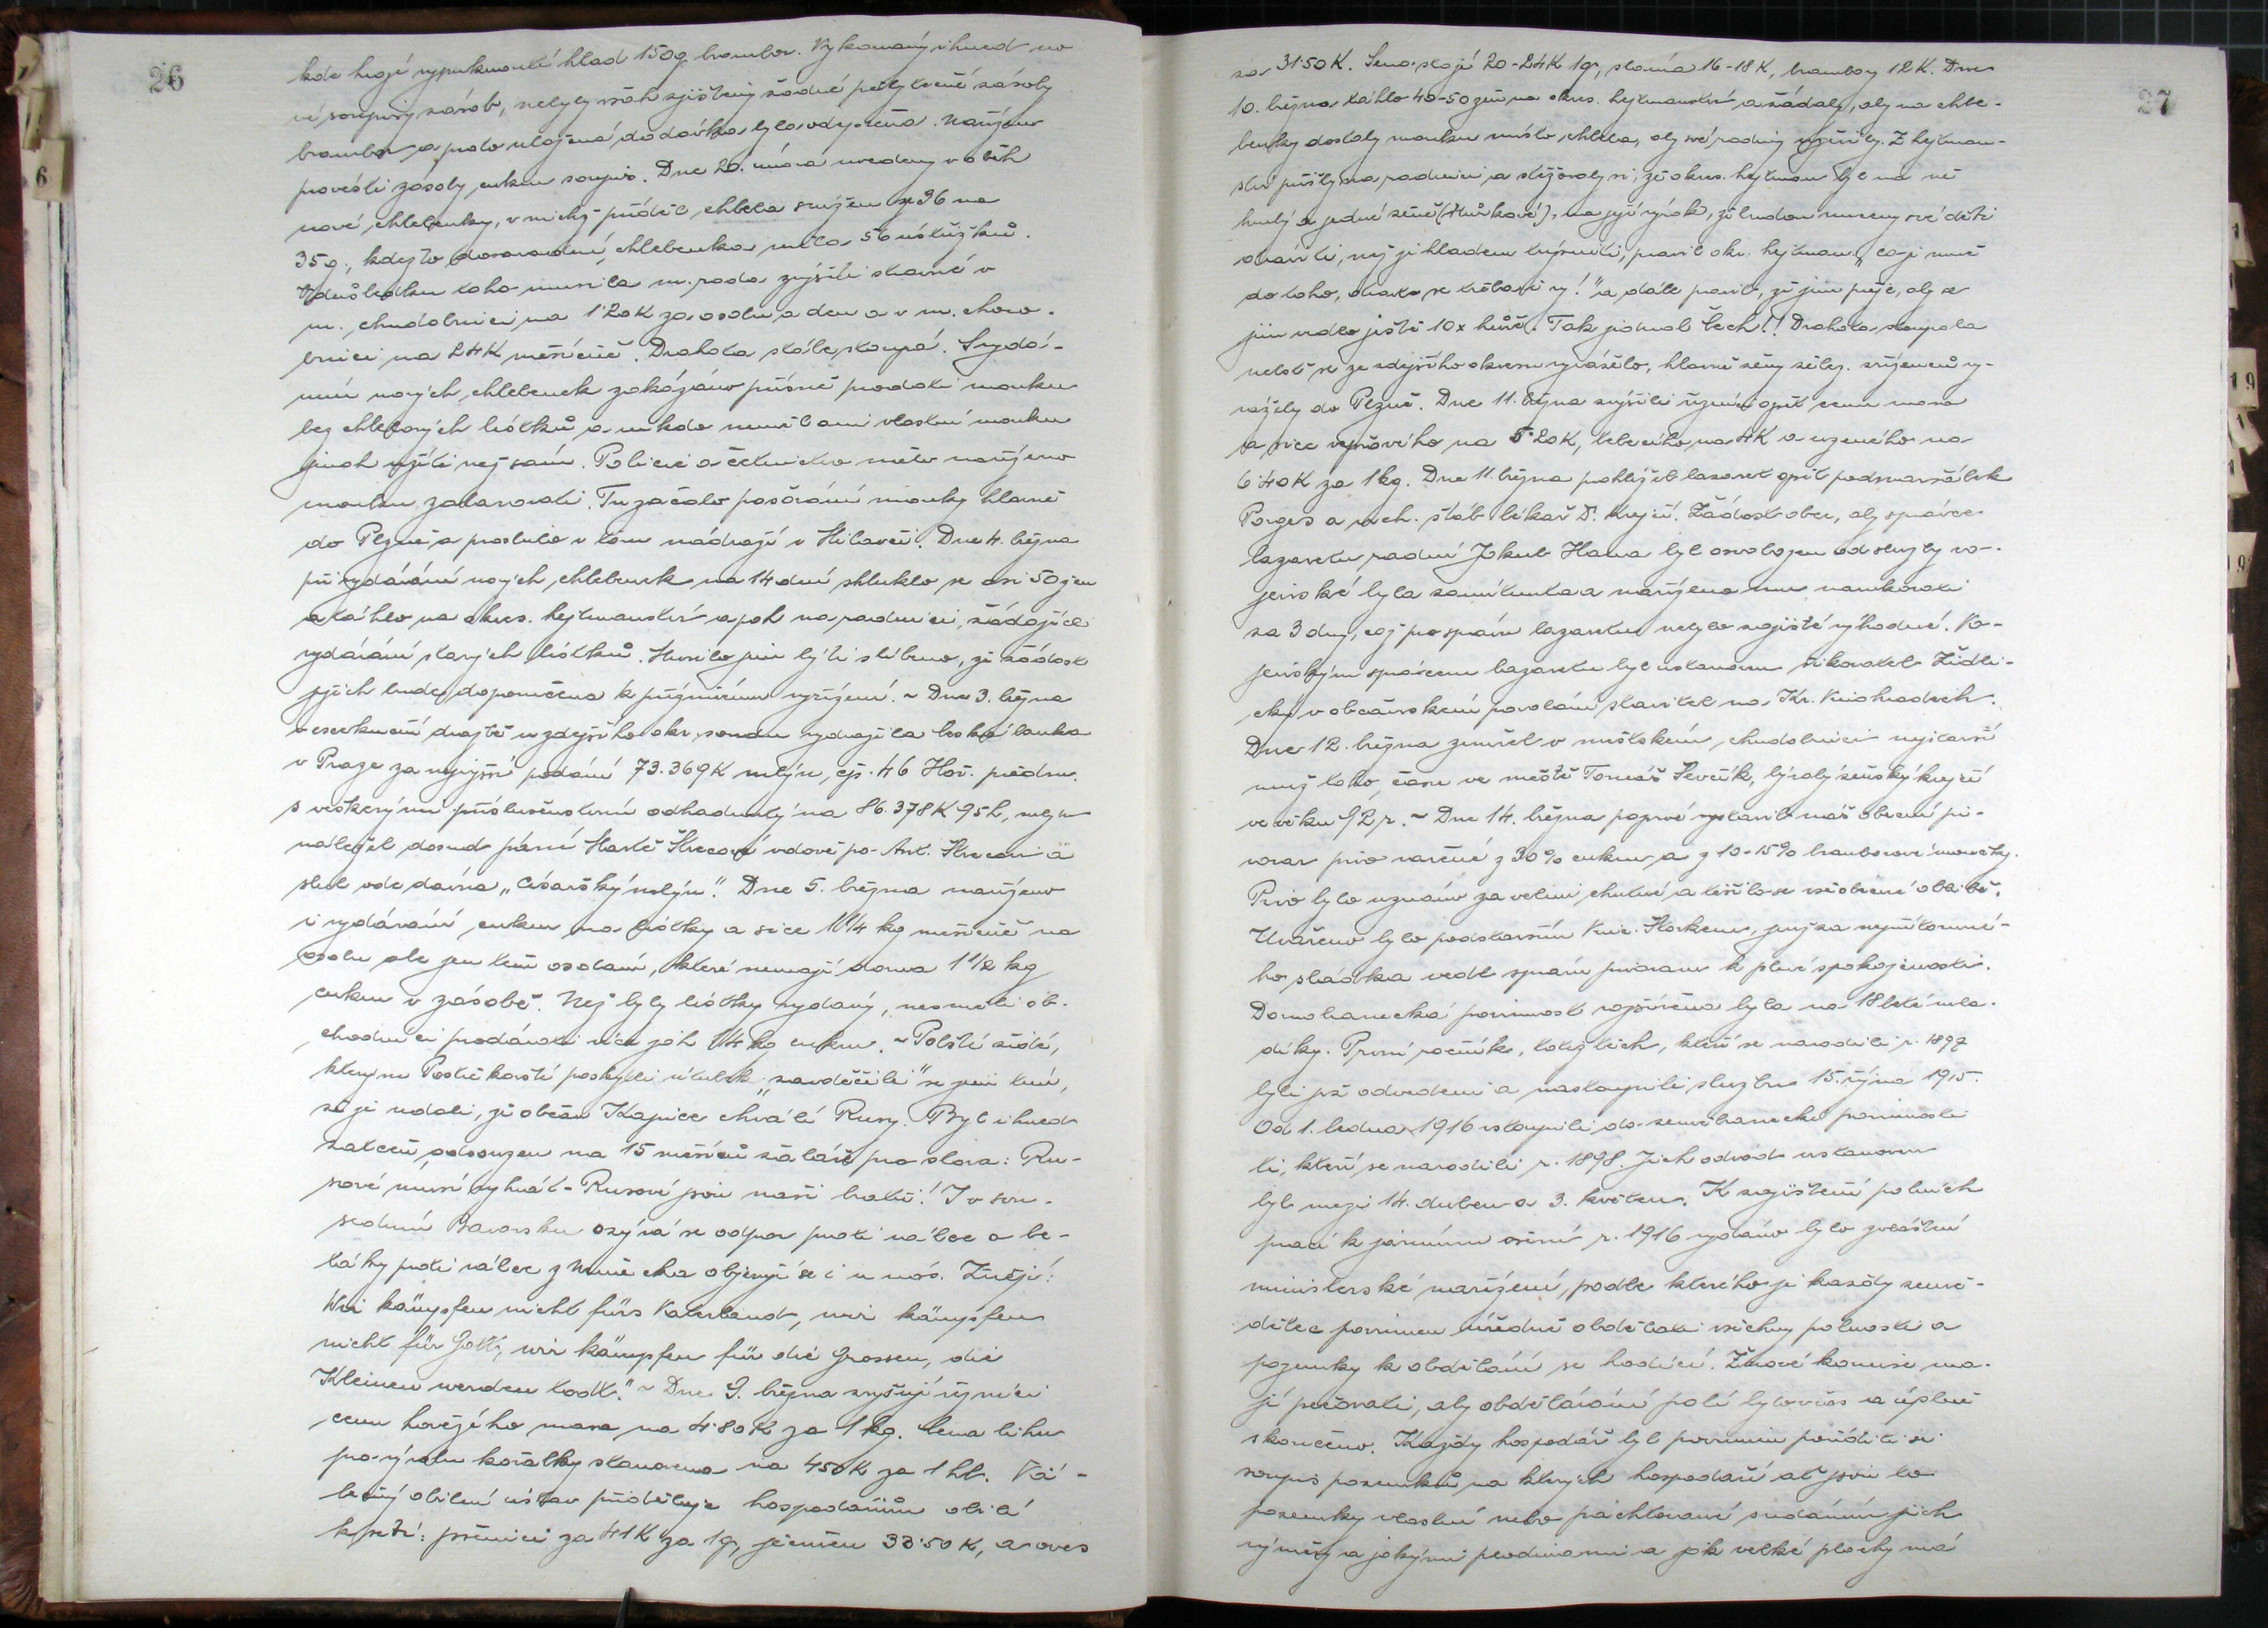 26
kde hrozí vypuknouti hlad 150 q brambor. Vykonaný ihned no-
vé soupisy zásob, nebyly však zjištěny žádné přebytečné zásoby
brambor a proto uložená dodávka byla odepřena. Nařízeno
provésti zásoby cukru soupis. Dne 20. února uvedeny v oběh
nové chlebenky, v nichž příděl chleba snížen z 36 na
35 q., kdežto dosavadní chlebenka měla 56 ústřižků.
V důsledku toho musila m. rada zvýšiti stravné v
m. chudobinci na 1'20 K za osobu a den a v m. choro-
binci na 24 K měsíčně. Drahota stále stoupá. S vydá-
ním nových chlebenek zakázáno přísně prodati mouku
bez chlebových lístků a nikdo nesměl ani vlastní mouku
jinak užíti než sám. Policii a četnictvu nařízeno
mouku zabavovati. Tu začalo pašování mouky hlavně
do Plzně a proslulo v tom nádraží v Milavči. Dne 4. března
při vydávání nových chlebenek na 14 dní shluklo se asi 50 žen
a táhlo na okres. hejtmanství a pak na radnici, žádajíce
vydávání starých lístků. Musilo jim býti slíbeno, že žádost
jejich bude doporučena k příznivému vyřízení. ~ Dne 3. března
v exekuční dražbě u zdejšího okr. soudu vydražila česká banka
v Praze za nejvyšší podání 73.369 K mlýn, čp. 46 Hoř. předm.
s veškerým příslušenstvím odhadnutý na 86.378 K 95 h, mlýn
náležel dosud paní Markét Skrecové vdově po Ant. Skrecovi a
slul ode dávna „Císařský mlýn". Dne 5. března nařízeno
i vydávání cukru na lístky a sice 1 1/4 kg měsíčně na
osobu ale jen těm osobám, které nemají doma 1 1/2 kg
cukru v zásobě. Než byly lístky vydány, nesměli ob-
chodníci prodávati více jak 1/4 kg cukru. ~ Polští židé,
kterým Postřekovští poskytli útulek, „zavděčili" se jim tím,
že je udali, že občan Kapice chválí Rusy. Byl ihned
zatčen odsouzen na 15 měsíců žaláře pro slova: Ru-
sové musí vyhrát - Rusové jsou naši bratři! I v sou-
sedním Bavorsku ozývá se odpor proti válce a le-
táky proti válce z Mnichova objevují se i u nás. Znějí:
Wir kämpfen nicht fürs Vaterland, wir kämpfen
nicht für Gott, wir kämpfen für die Grossen, die
Kleinen werden todt." ~ Dne 9. března zvyšují řezníci
cenu hovězího masa na 4'80 K za 1 kg. Cena lihu
pro výrobu kořalky stanovena na 450 K za 1 hl. Vá-
lečný obilní ústav přiděluje hospodářům obilí
k setí: pšenici za 41 K za 1 q, ječmen 33'50 K, a oves
27
za 31'50 K. Seno stojí 20-24 K 1 q, sláma 16-18 K, brambory 12 K. Dne
10. března táhlo 40-50 žen na okres. hejtmanství a žádaly, aby na chle-
benky dostaly mouku místo chleba, aby své rodiny uživily. Z hejtman-
ství přišly na radnici a stěžovaly si, že okres. hejtman byl na ně
hrubý a jedné ženě, na její výrok, že budou museny své děti
otráviti, než je hladem trýzniti, pravil okr. hejtman „co je mně
do toho, otravte se třeba i vy!" a dále pravil, že jim přeje, aby se
jim vedlo ještě 10x hůře. Tak jednal Čech!! Drahota stoupala
neboť se ze zdejšího okresu vyváželo, hlavně ženy želez. zřízenců vy-
vážely do Plzně. Dne 11. března zvýšili řezníci opět cenu masa
a sice vepřového na 5'20 K, telecího na 4 K a uzeného na
6'40 K za 1 kg. Dne 11. března prohlížel lazaret opět podmaršálek
Porges a vrch. štáb. lékař Dr. Krejčí. Žádost obce, aby správce
lazaretu radní Jakub Hana byl osvobozen od služby vo-
jenské byla zamítnuta a nařízeno mu narukovati
za 3 dny, což pro správu lazaretu nebylo zajisté výhodné. Vo-
jenským správcem lazaretu byl ustanoven šikovatel Židli-
cký v občanském povolání stavitel na Kr. Vinohradech.
Dne 12. března zemřel v městském chudobinci nejstarší
muž toho času ve městě Tomáš Ševčík, bývalý ženský krejčí
ve věku 92 r. ~ Dne 14. března poprvé vystavil náš obecní pi-
vovar pivo vařené z 30% cukru a z 10-15% bramborové moučky.
Pivo bylo uznáno za velmi chutné a těšilo se všeobecné oblibě.
Uvařeno bylo podstarším Vinc. Storkem, jenž za nepřítomné-
ho sládka vedl správu pivovaru k plné spokojenosti.
Domobranecká povinnost rozšířena byla na 18leté mla-
díky. První ročník, totiž těch, kteří se narodili r. 1897
byli již odvedeni a nastoupili službu 15. října 1915.
Od 1. ledna 1916 vstoupili do zeměbranecké povinnosti
ti, kteří se narodili r. 1898. Jich odvod ustanoven
byl mezi 14. dubnem a 3. květnem. K zajištění polních
prací k jarnímu osení r. 1916 vydáno bylo zvláštní
ministerské nařízení, podle kterého je každý země-
dělec povinen úředně obdělati všechny polnosti a
pozemky k obdělání se hodící. Žňové komise ma-
jí pečovati, aby obdělávání polí bylo včas a úplně
skončeno. Každý hospodář byl povinen poříditi si
soupis pozemků na kterých hospodaří ať jsou to
pozemky vlastní nebo pachtované s udáním jich
výměry a jakými plodinami a jak velké plochy má